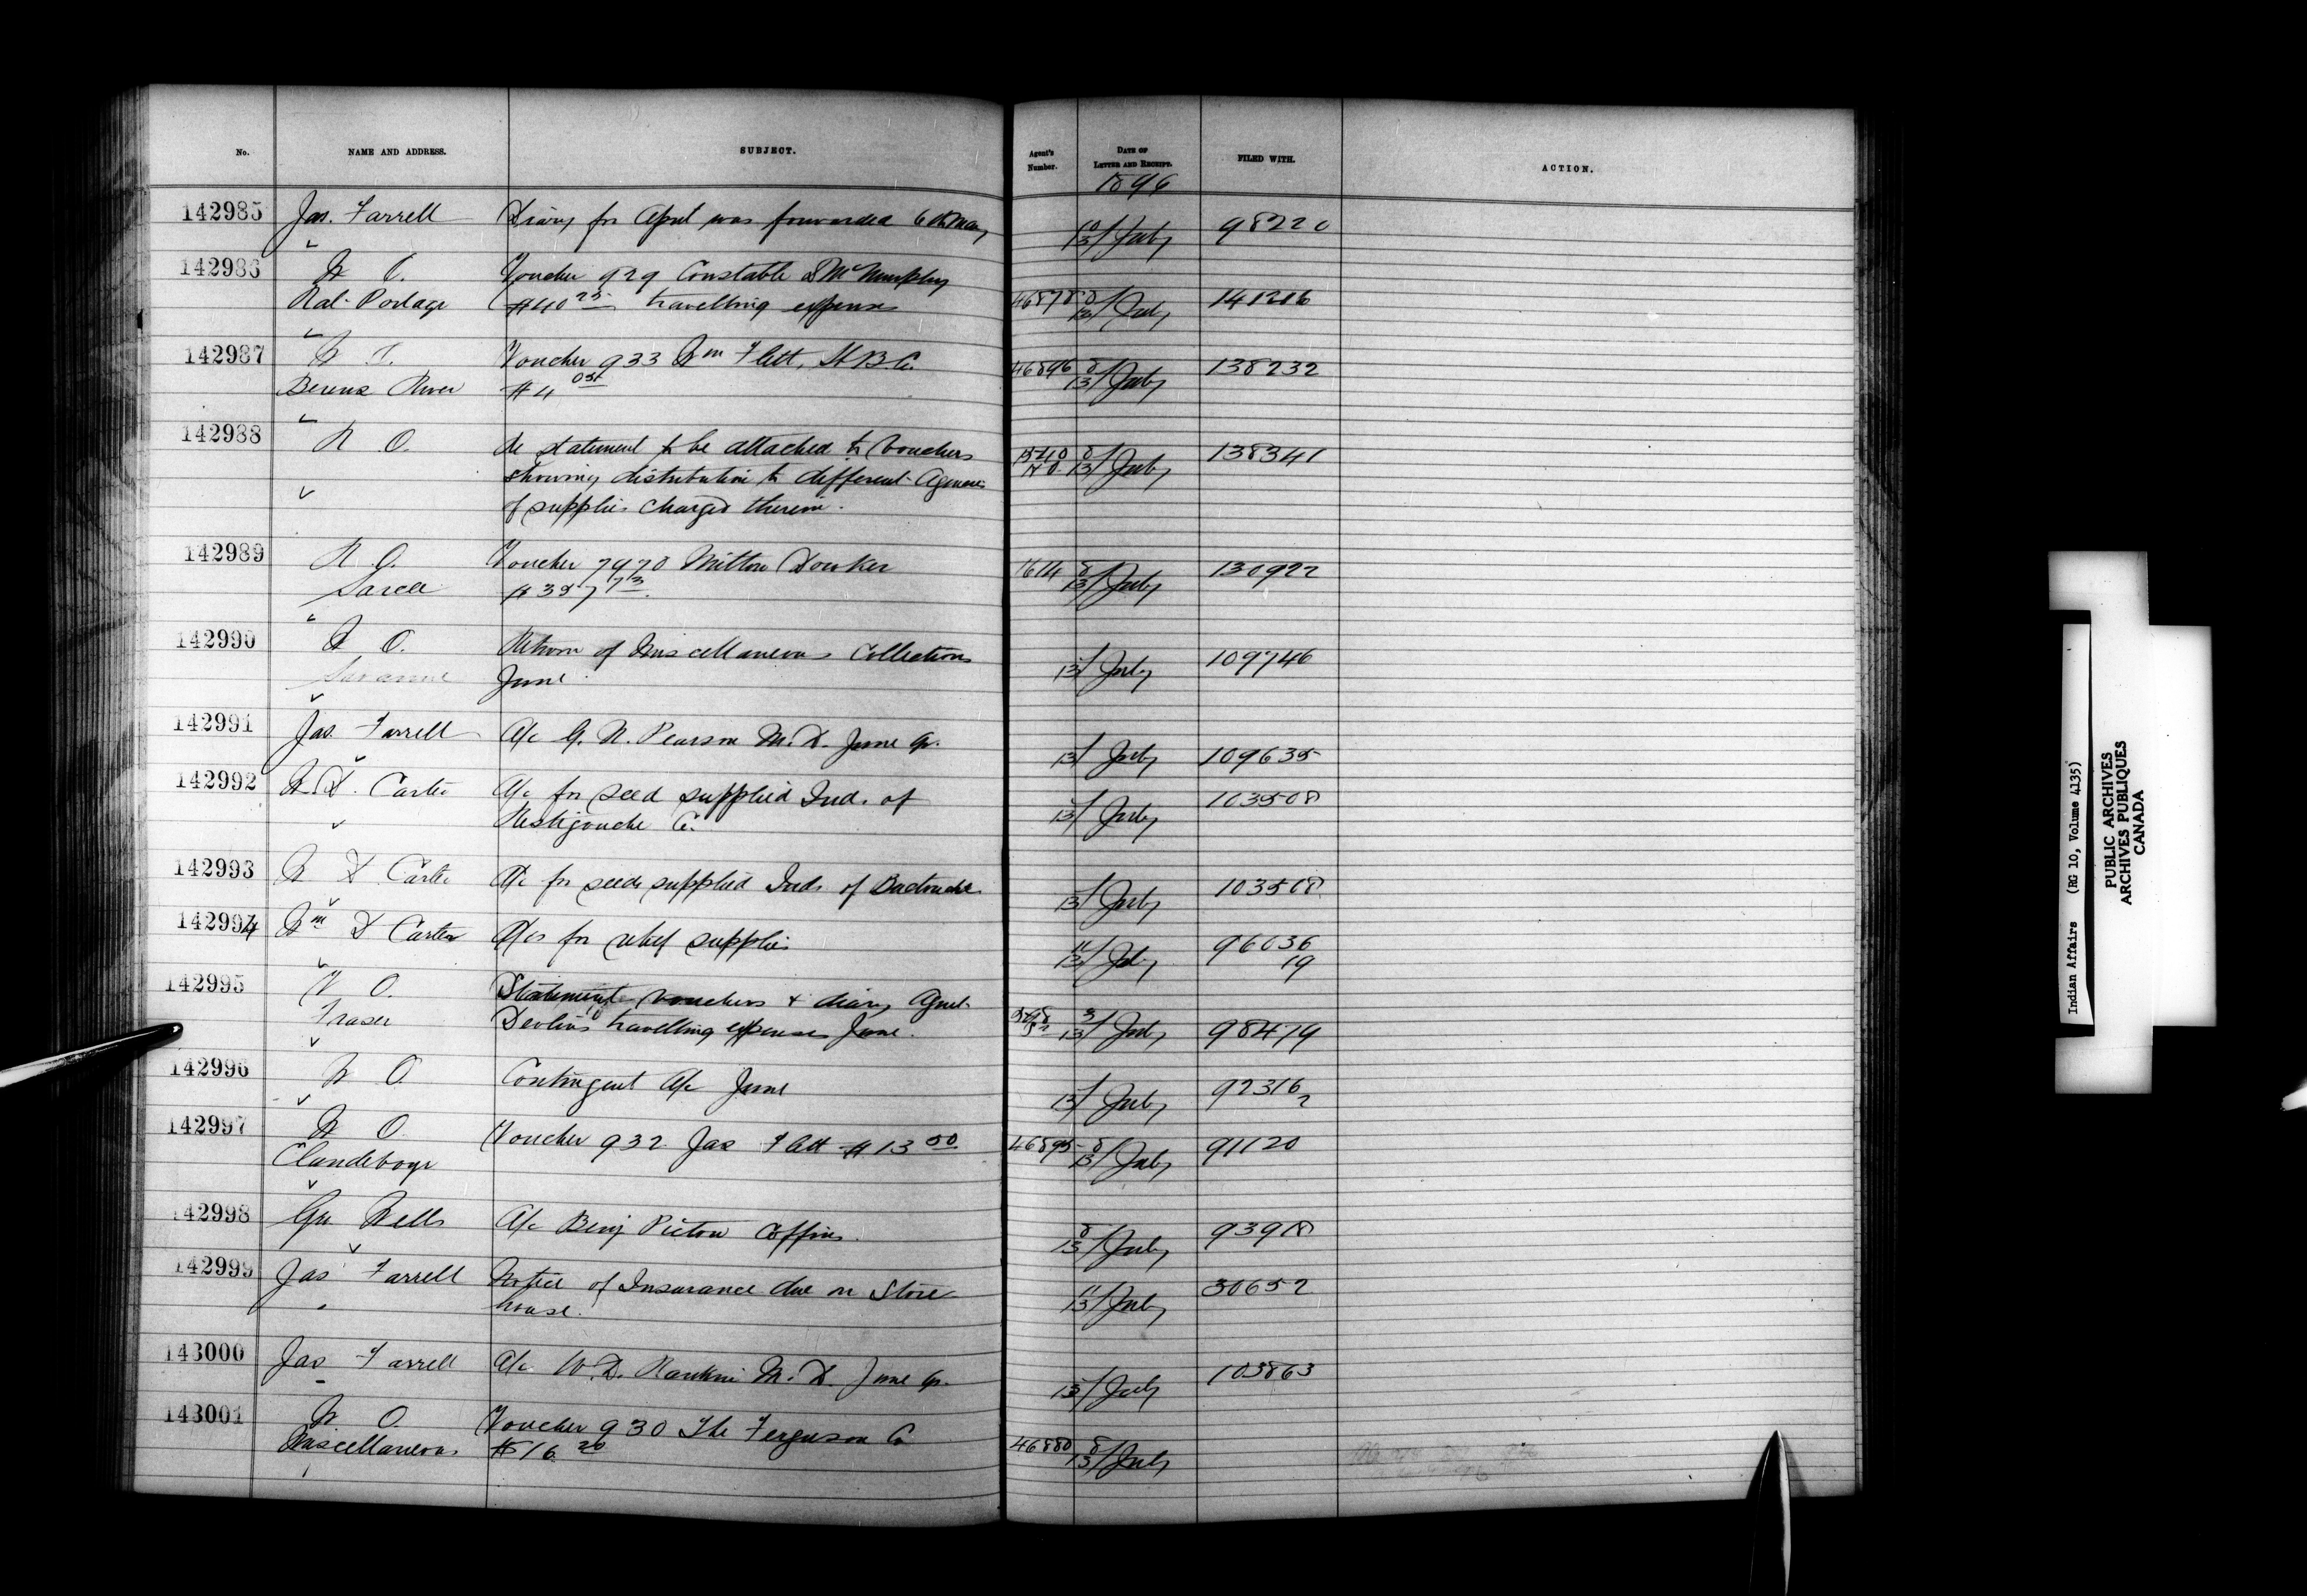 No. NAME AND ADDRESS. SUBJECT. Agent's Number. DATE OF LETTER AND RECEIPT. FILED WITH. ACTION.
1896
142985 Jas. Farrell Diary for April was forwarded 6th May 10/13 July 98220
142986 W O. Voucher 929 Constable
Rat Portage $40 25 travelling expenses 46878 8/13 July 141216
142987 Voucher 933 Wm Flett, H B C. 46896 8/13 July 138232
Berens River $4
142988 N O. Re statement to be attached to vouchers 8/13 July 138341
showing distribution to different Agencies
of supplies charged therein.
142989 N O. Voucher 7970 Milton 1614 8/13 July 130922
Sarcee
142990 W O. Return of Miscellaneous Collections 13/ July 109746
Savanne June
142991 Jas. Farrell A/c G. N. Pearson M.D. June qr. 13/ July 109635
142992 W D. Carter A/c for seed supplied Ind. of 13/ July 103508
Restigouche Co.
142993 W D Carter A/c for seeds supplied Inds of Buctouche 13/ July 103508
142994 Wm D Carter A/cs for relief supplies 11/13 July 96036
19
142995 V O. Statement vouchers & diary Agent
Fraser Devlin's travelling expenses June. 13/ July 98419
142996 W O. Contingent A/c June 13/ July 92316
2
142997 W O. Voucher 932 Jas Flett $13 50 46895 8/13 July 91120
Clandeboye
142998 Geo Wells A/c Benj Picton Coffins. 8/13 July 93918
142999 Jas Farrell Notice of Insurance due on Store 11/13 July 30652
house.
143000 Jas Farrell A/c W. D. Rankin M. D. June qr. 13/ July 103863
143001 W O. Voucher 930 The Ferguson Co
Miscellaneous $516 20 46880 8/13 July
Indian Affairs (RG 10, Volume 4135)
PUBLIC ARCHIVES
ARCHIVES PUBLIQUES
CANADA